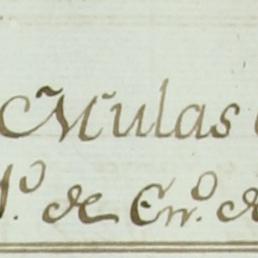 Mulas
de En.º